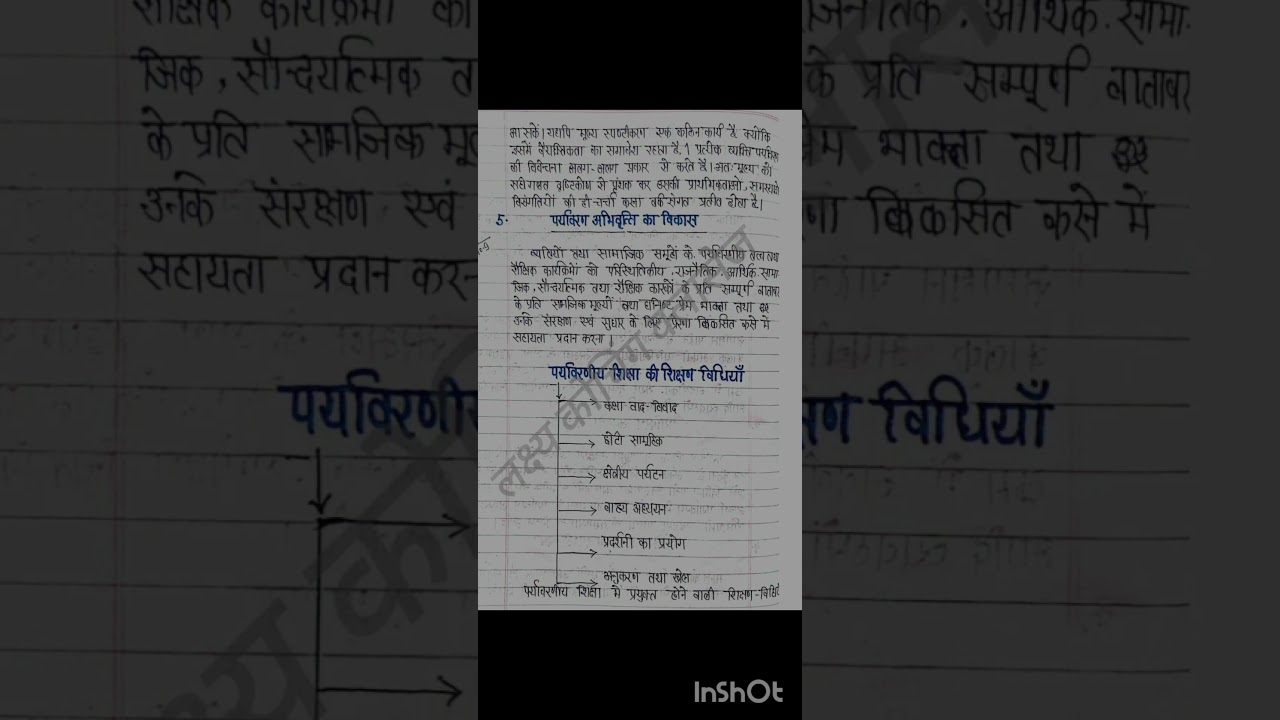 जा सकें। यद्यपि मूल्य स्पष्टीकरण एक कठिन कार्य है क्योंकि
इसमें वैयक्तिकता का समावेश रहता है। प्रत्येक व्यक्ति पर्यावरण
की विवेचना अलग-अलग प्रकार से करते हैं। अतः मूल्य की
दृष्टिकोण से पृथक कर उसकी प्राथमिकताओं, समस्याओं
विसंगतियों की ही चर्चा कक्षा तर्कसंगत प्रतीत होता है।
5. पर्यावरण अभिवृत्ति का विकास
व्यक्तियों तथा सामाजिक समूहों के पर्यावरणीय तत्व तथा
शैक्षिक कार्यक्रमों को परिस्थितिकीय, राजनैतिक, आर्थिक, सामा-
जिक, सौन्दर्यात्मक तथा शैक्षिक कारकों के प्रति सम्पूर्ण वातावर
के प्रति सामाजिक मूल्यों तथा घनिष्ट प्रेम भावना तथा
उनके संरक्षण एवं सुधार के लिए प्रेरणा विकसित करने में
सहायता प्रदान करना।
पर्यावरणीय शिक्षा की शिक्षण विधियाँ
कक्षा वाद-विवाद
छोटी सामूहिक
क्षेत्रीय पर्यटन
बाह्य अध्ययन
प्रदर्शनी का प्रयोग
अनुकरण तथा खेल
पर्यावरणीय शिक्षा में प्रयुक्त होने वाली शिक्षण-विधि
लक्ष्य कोचिंग क्लासेज
InShOt